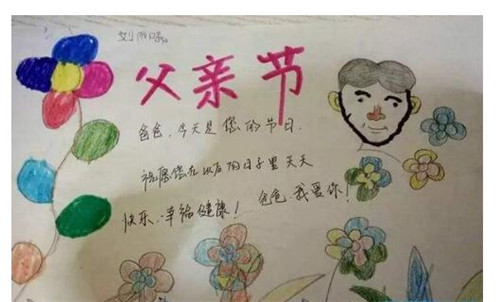 父亲节
爸爸,今天是您的节日.
祝愿您在以后的日子里天天
快乐.幸福健康! 爸爸.我爱你!